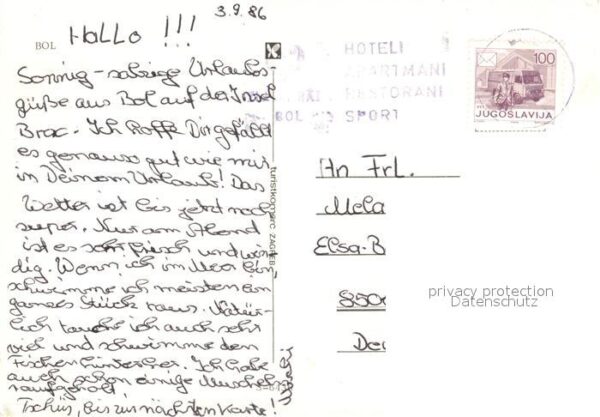 3.9.86
BOL
Hallo !!!
Sonnig-salzige Urlaubs-
grüße aus Bol auf der Insel
Brac. Ich hoffe Dir gefällt
es genauso gut wie mir
in Deinem Urlaub! Das
Wetter ist bis jetzt noch
super. Nur am Abend
ist es sehr frisch und win-
dig. Wenn ich im Meer bin
schwimme ich meistens ein
ganzes Stück raus. Natür-
lich tauche ich auch sehr
viel und schwimme den
Fischen hinterher. Ich habe
auch schon einige Muscheln
raufgeholt.
Tschüs, bis zur nächsten Karte!
turistkomerc ZAGREB
HOTELI
APARTMANI
RESTORANI
BOL
SPORT
100
JUGOSLAVIJA
An Frl.
Mela
Elsa-B
850
De
privacy protection
Datenschutz